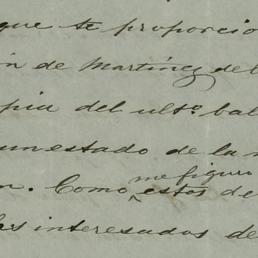 que te proporcio
ón de Martínez del
pia del ult.º bal
un estado de la
me figuro
n. Como estos de
les interesados de